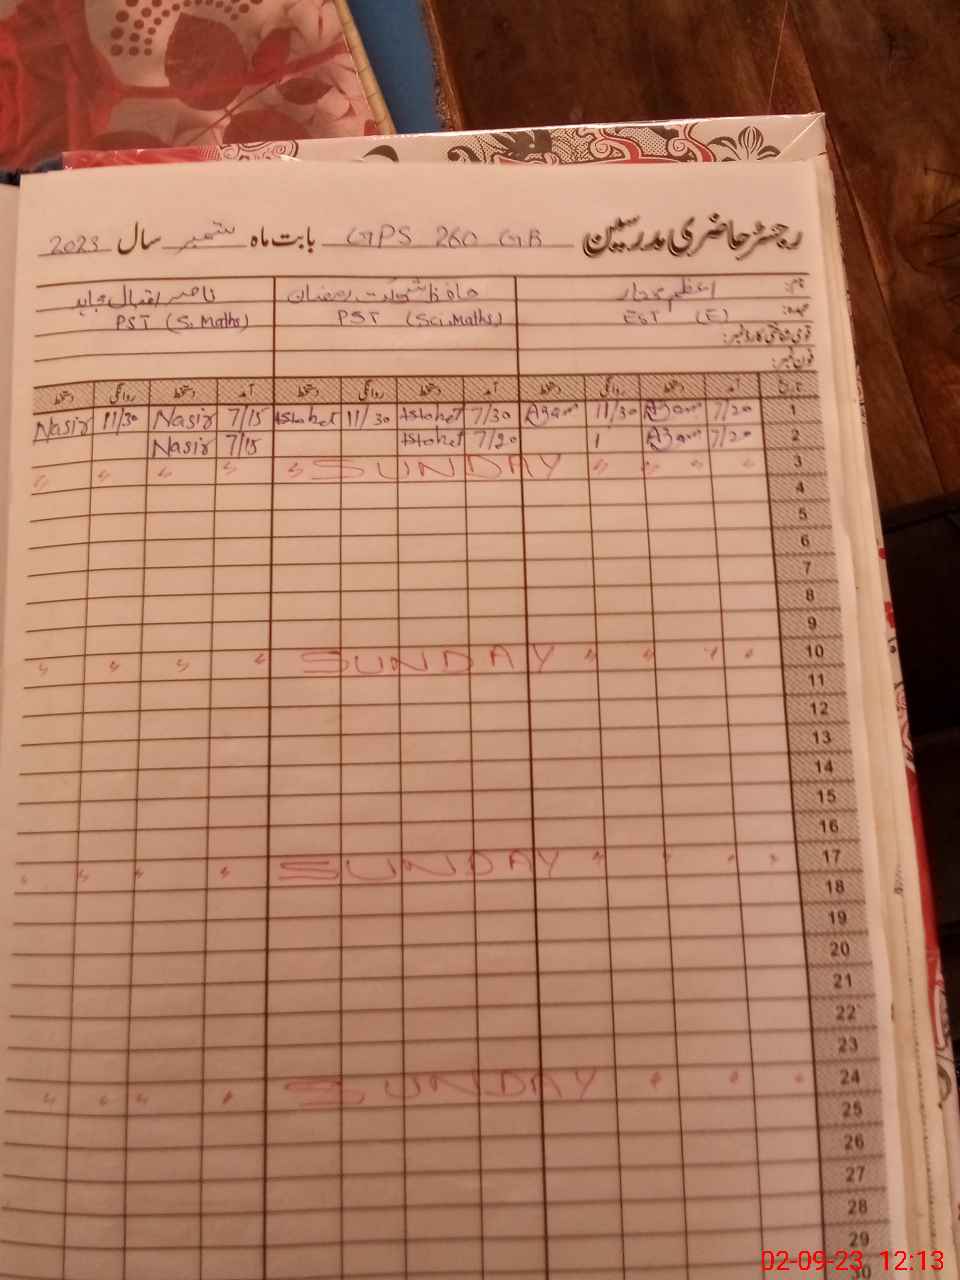 رجسٹر حاضری مدرسین GPS 260 GB بابت ماہ ستمبر سال 2023
نام:
ناصر اقبال مجاہد
عہدہ: EST (E) PST (Sci.Maths) PST (S.Maths)
قومی شناختی کارڈ نمبر:
فون نمبر:
تاریخ آمد دستخط روانگی دستخط آمد دستخط روانگی دستخط آمد دستخط روانگی دستخط
1 7/20 Azam 11/30 Azam 7/30 11/30 7/15 Nasir 11/30 Nasir
2 7/20 Azam 1 7/20 7/15 Nasir
3 " " " " SUNDAY " " " " "
4
5
6
7
8
9
10 " " " " SUNDAY " " " "
11
12
13
14
15
16
17 " " " " SUNDAY " " " "
18
19
20
21
22
23
24 " " " SUNDAY " " " "
25
26
27
28
29
30
02-09-23 12:13